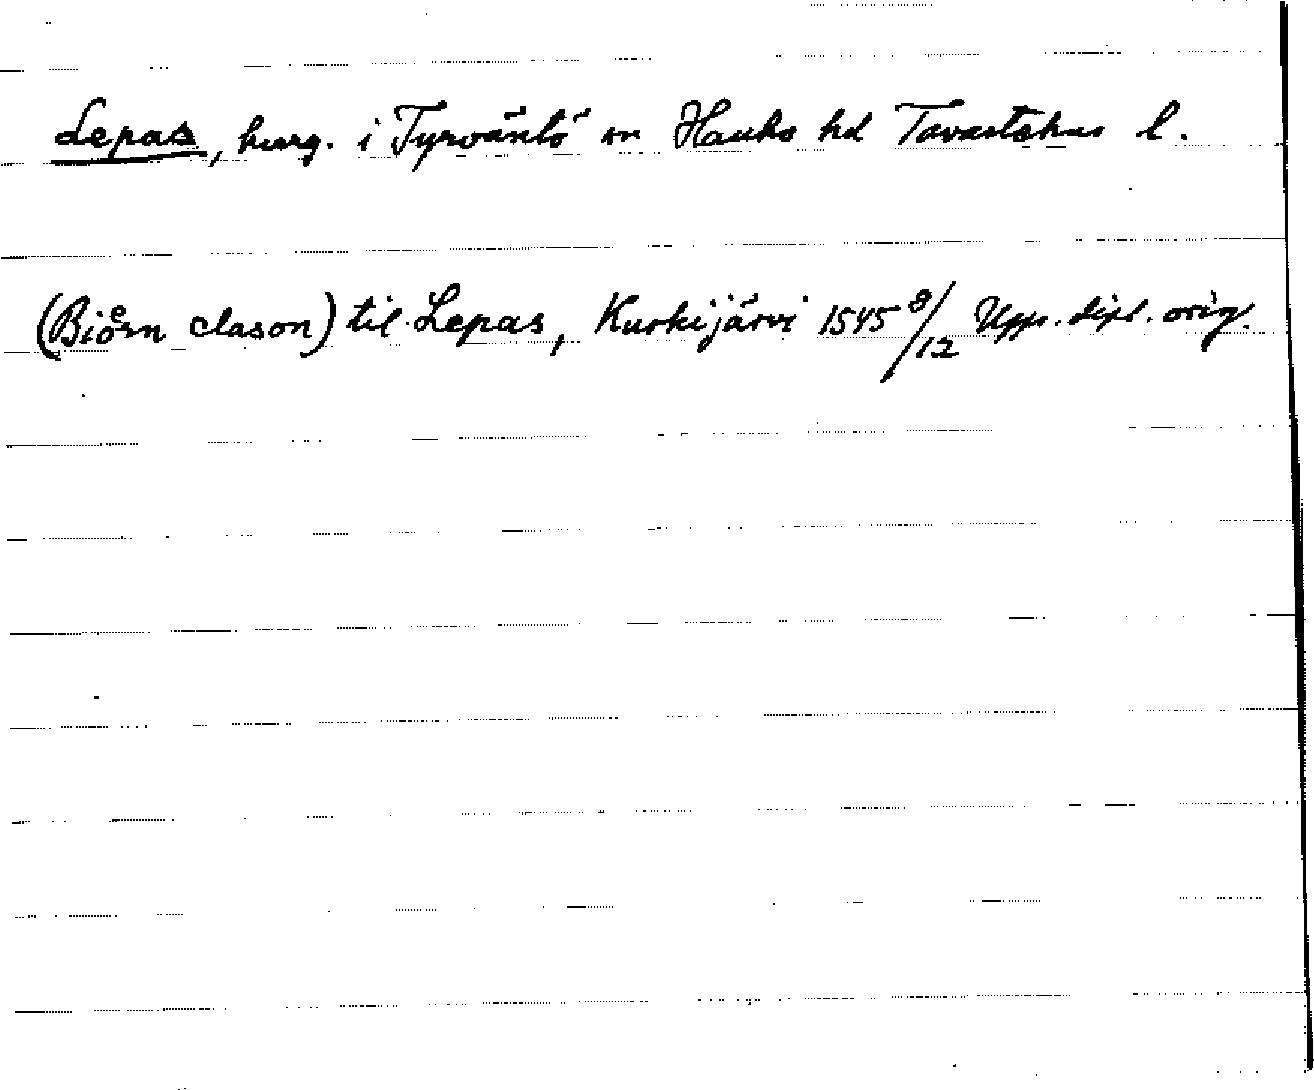 Lepas, herrg. i Tyrväntö sn Hauho hd Tavastehus l.
(Bioͤrn clason) til Lepas, Kurkijärvi 1545 8/12 Upps. dipl. orig.